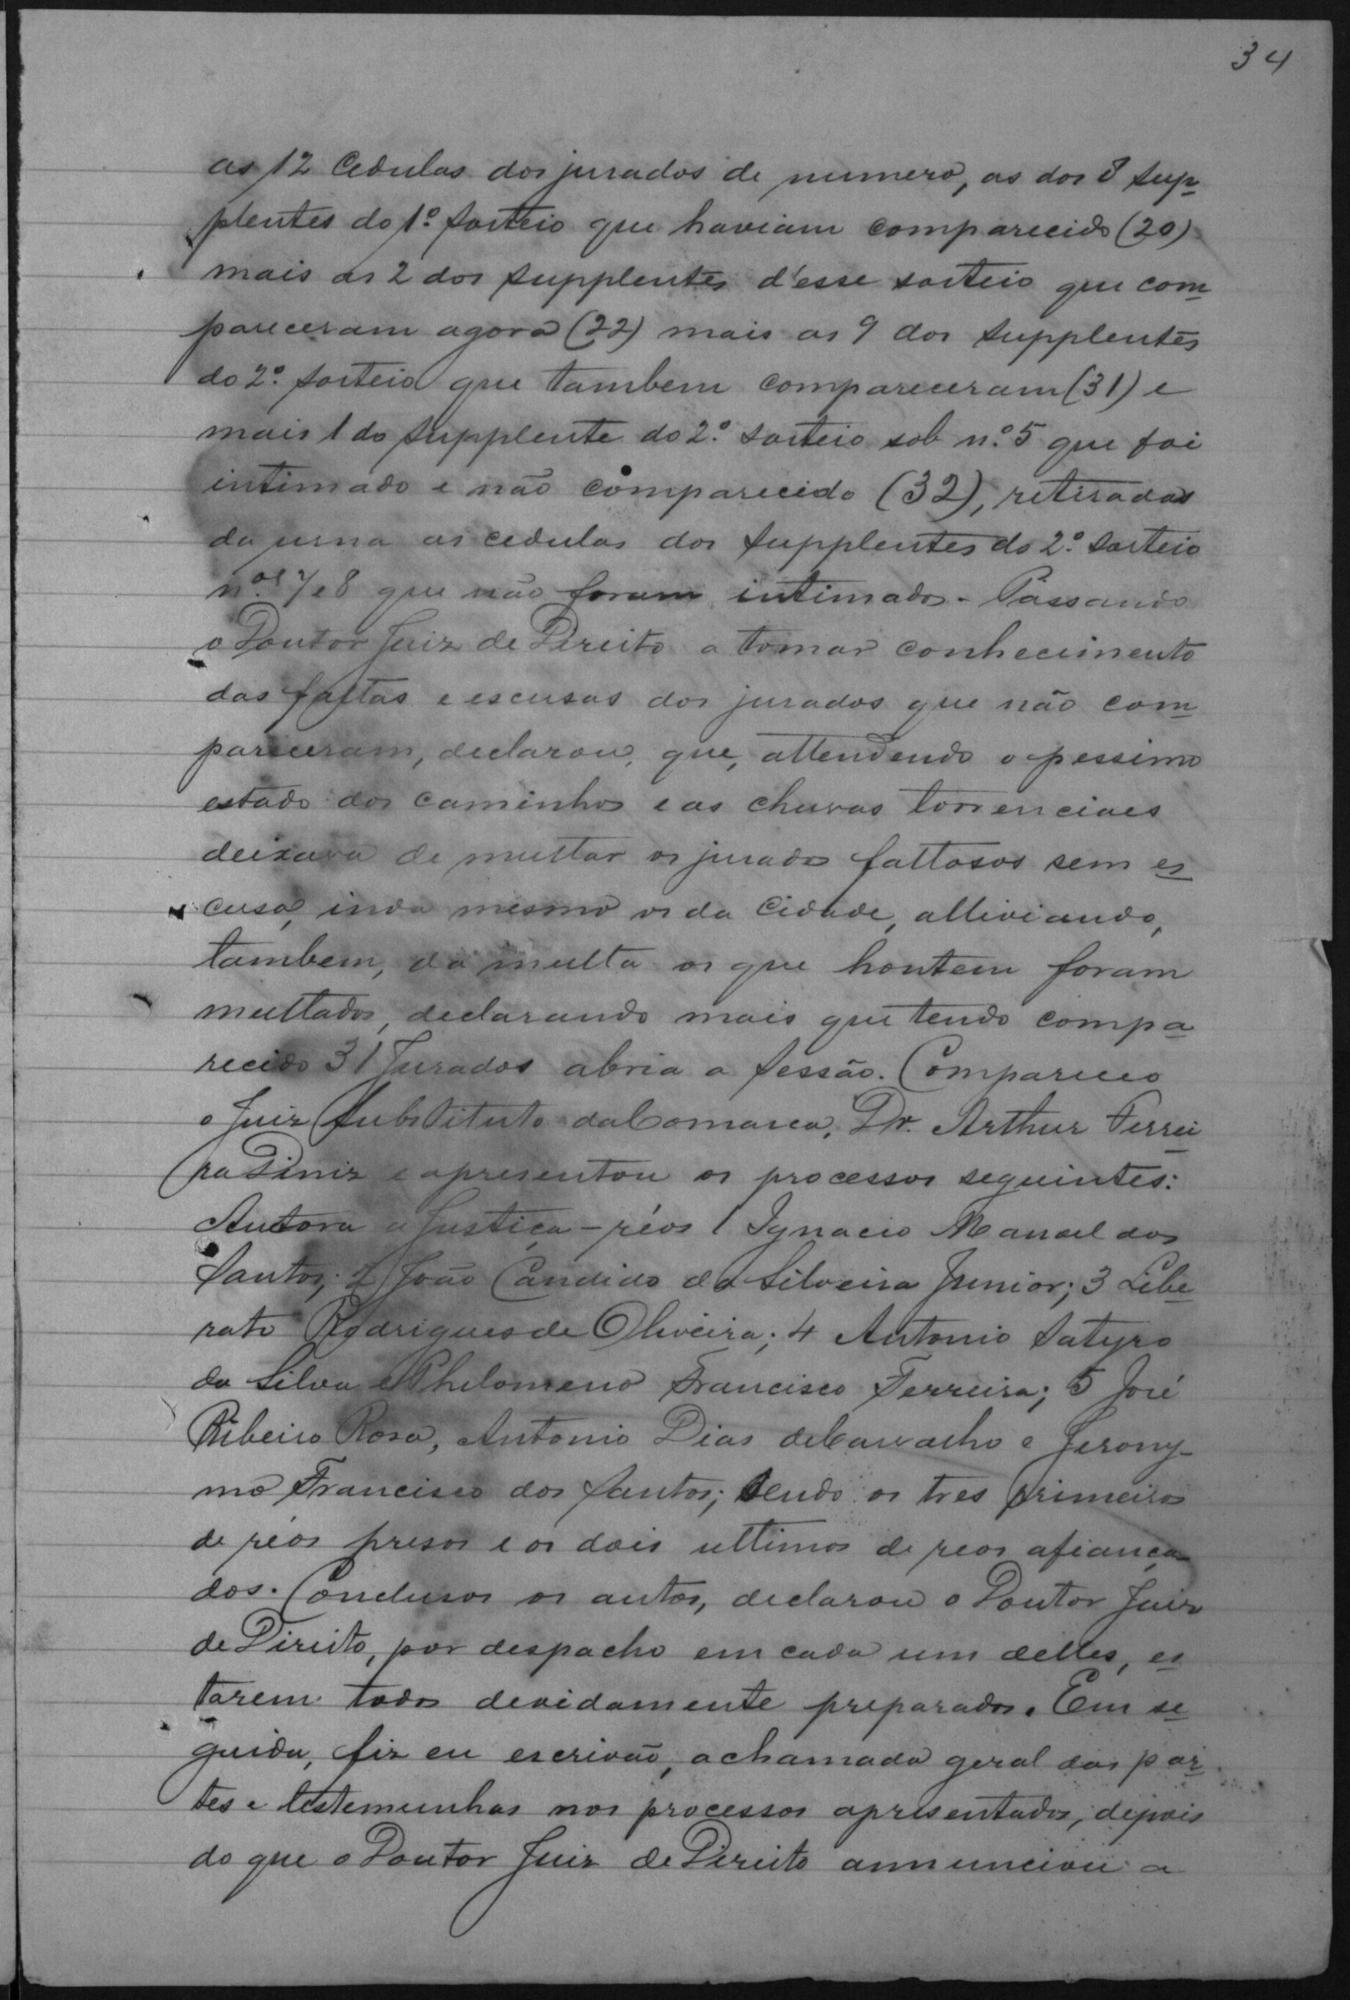 34
as 12 cedulas dos jurados de numero, as dos 8 sup-
plentes do 1º sorteio que haviam comparecido (20)
mais as 2 dos supplentes d'esse sorteio que com-
pareceram agora (22) mais as 9 dos supplentes
do 2º sorteio que tambem compareceram (31) e
mais 1 do supplente do 2º sorteio sob nº 5 que foi
intimado e não comparecido (32), retiradas
da urna as cedulas dos supplentes do 2º sorteio
nºs 7 e 8 que não foram intimados. Passando
o Doutor Juiz de Direito a tomar conhecimento
das faltas e escusas dos jurados que não com-
pareceram, declarou, que, attendendo o pessimo
estado dos caminhos e as chuvas torrenciaes
deixava de multar os jurados faltosos sem es-
cusa, inda mesmo os da cidade, alliviando,
tambem, da multa os que hontem foram
multados, declarando mais que tendo compa-
recido 31 Jurados abria a sessão. Compareceo
o Juiz Substituto da Comarca, Dr. Arthur Ferrei-
ra Diniz e apresentou os processos seguintes:
Autora a Justiça - réos 1 Ignacio Manoel dos
Santos; 2 João Candido da Silveira Junior; 3 Libe-
rato Rodrigues de Oliveira; 4 Antonio Satyro
da Silva e Philomeno Francisco Ferreira; 5 José
Ribeiro Rosa, Antonio Dias de Carvalho e Jerony-
mo Francisco dos Santos; sendo os tres primeiros
de réos presos e os dois ultimos de reos afiança-
dos. Conclusos os autos, declarou o Doutor Juiz
de Direito, por despacho em cada um delles, es-
tarem todos devidamente preparados. Em se-
guida, fiz eu escrivão, a chamada geral das par-
tes e testemunhas nos processos apresentados, depois
do que o Doutor Juiz de Direito annunciou a